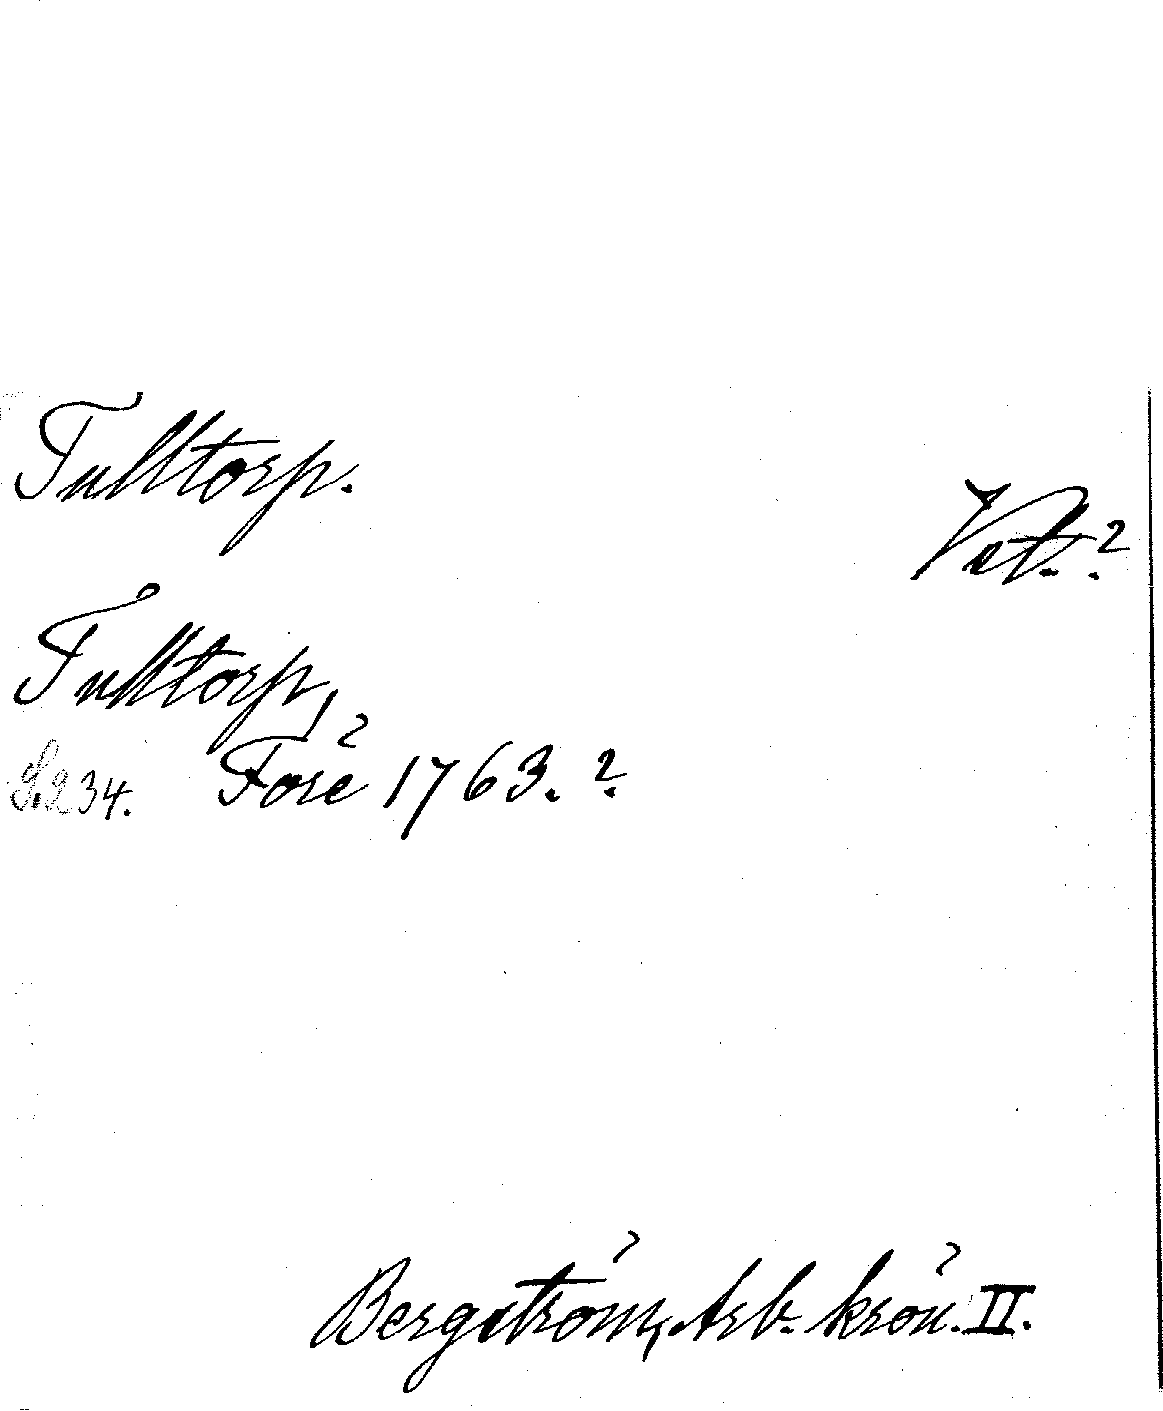 Tulltorp.
Vst. ?
Tulltorp,
S. 234. Före 1763. ?
Bergström, Arb. krön. II.